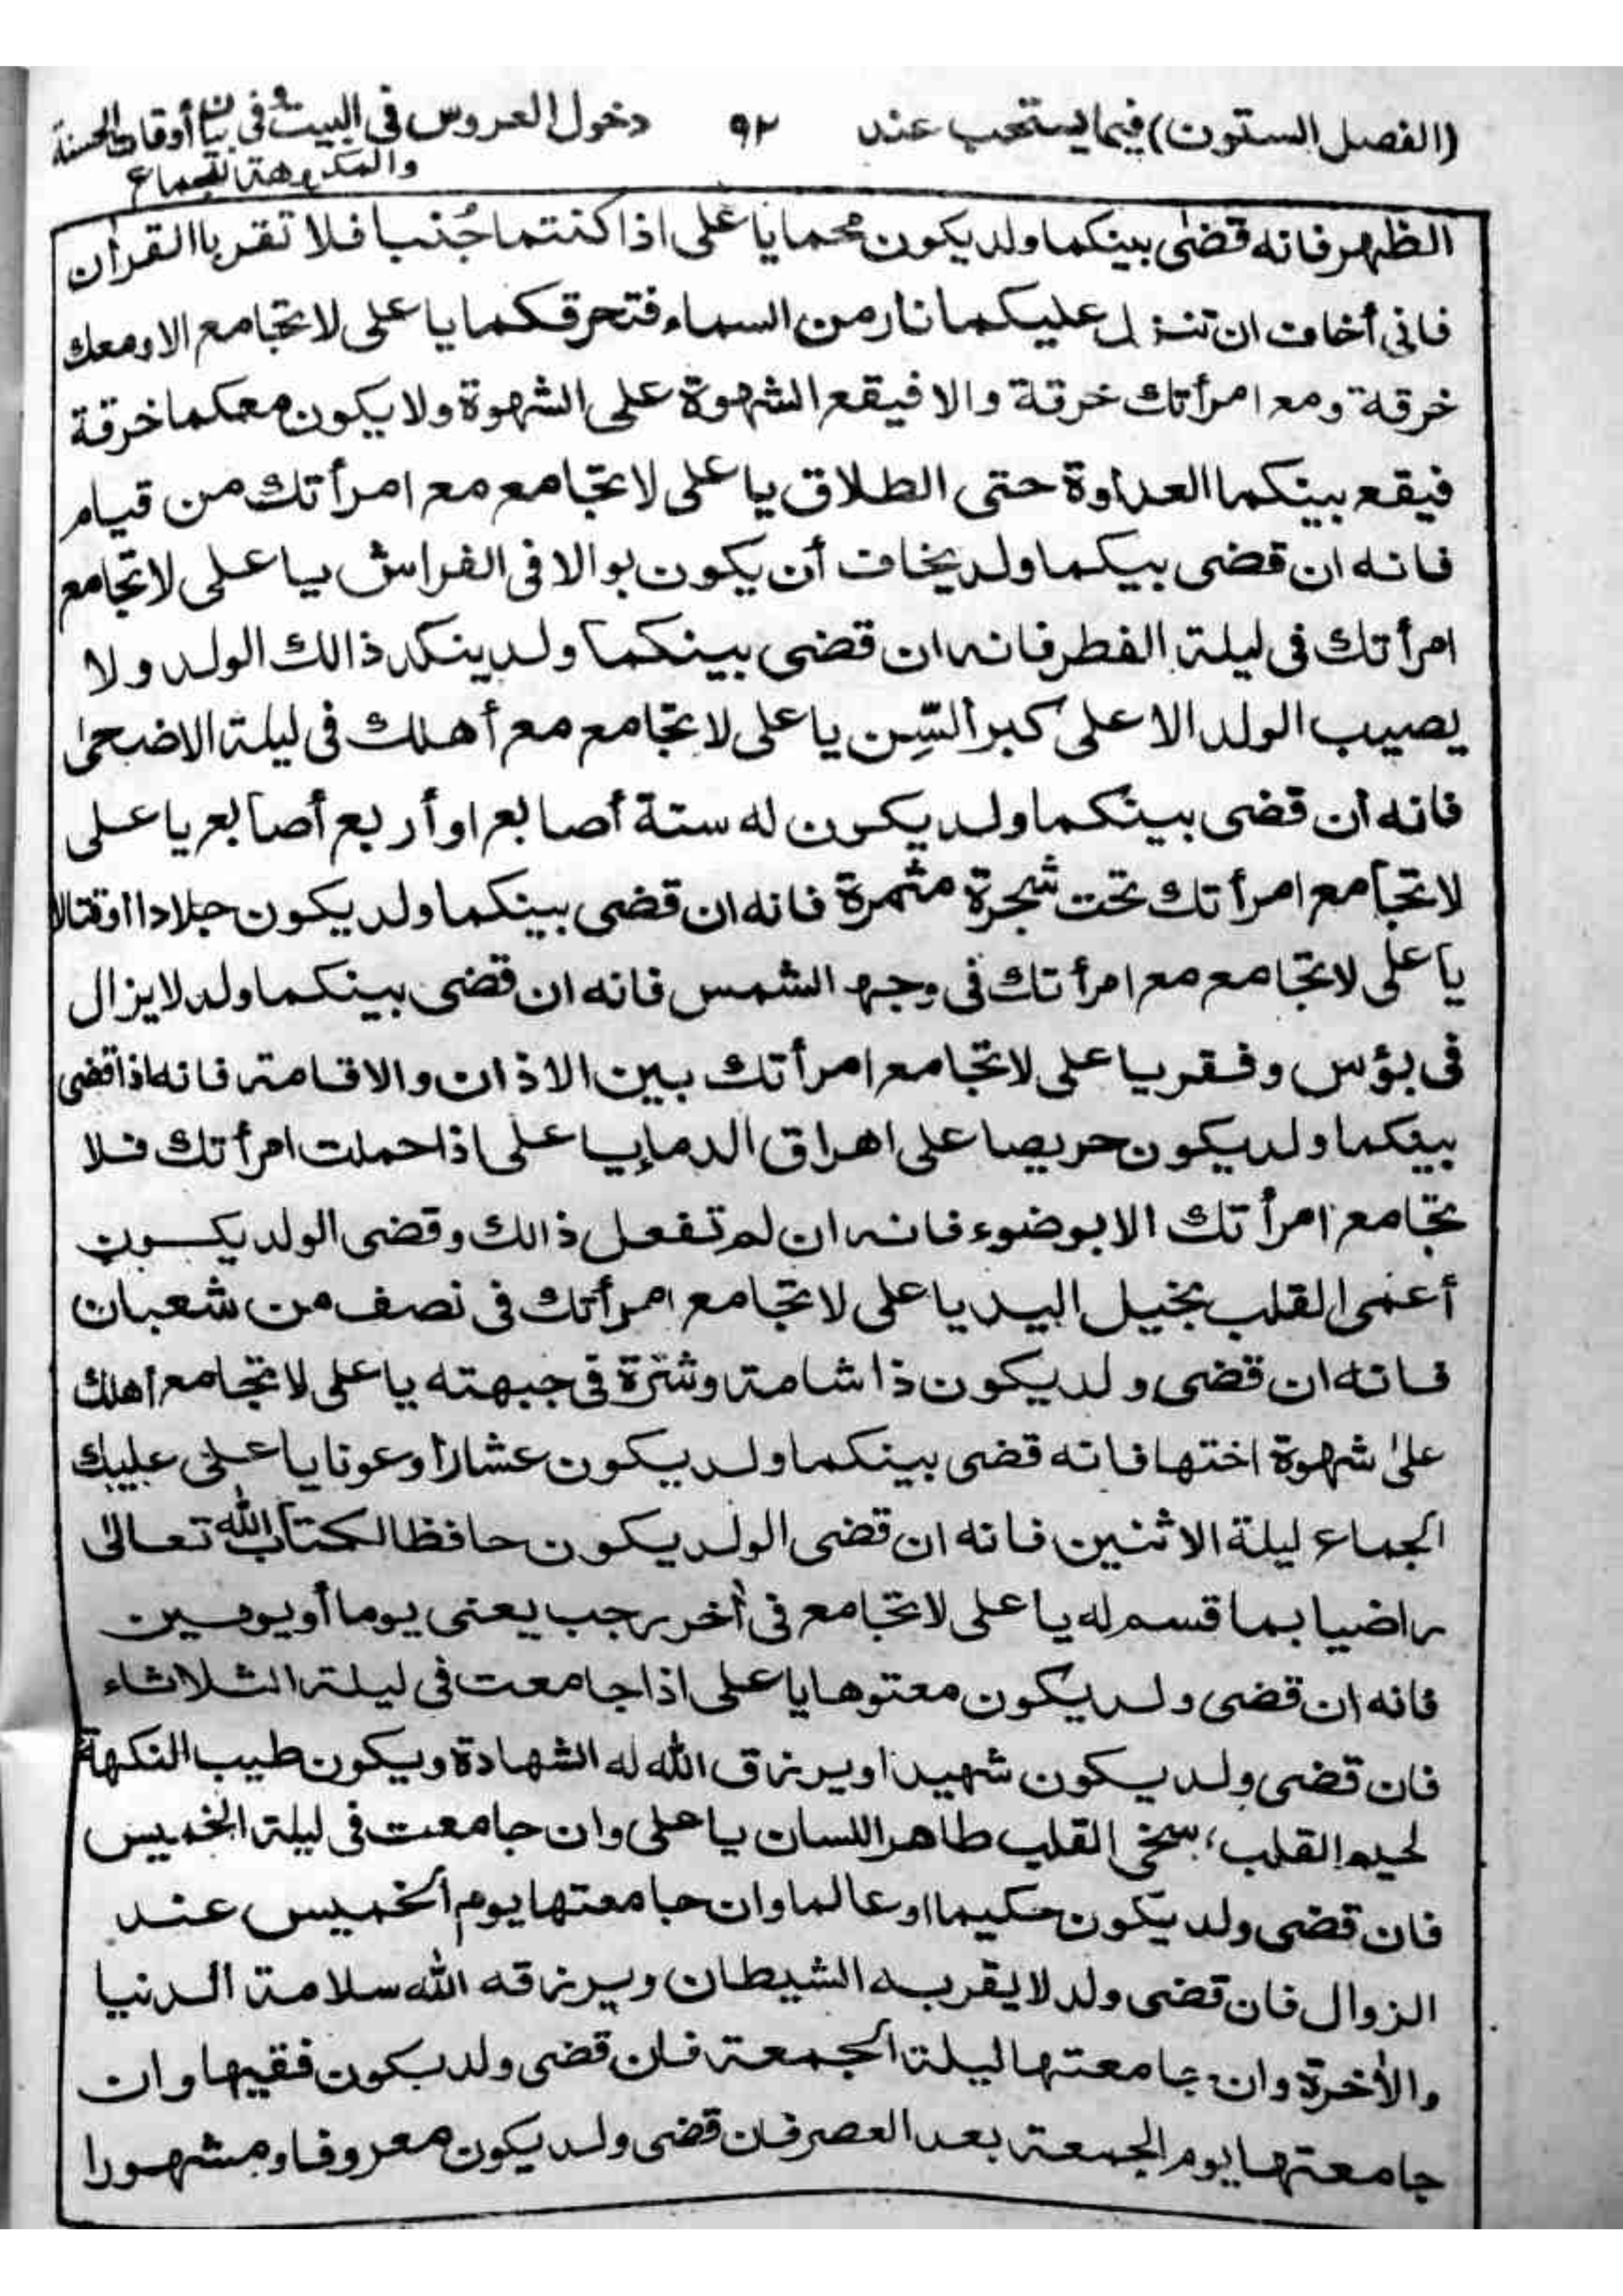 (الفصل الستون) فيما يستحب عند ٩٢ دخول العروس فى البيت وفى بيان أوقات الحسنة
والمكروهة للجماع
الظهر فانه قضى بينكما ولد يكون محما يا على اذا كنتما جُنبا فلا تقربا القرأن
فانى أخاف ان تنزل عليكما نار من السماء فتحرقكما يا على لا تجامع الا ومعك
خرقة ومع امرأتك خرقة والا فيقع الشهوة على الشهوة ولا يكون معكما خرقة
فيقع بينكما العداوة حتى الطلاق يا على لا تجامع مع امرأتك من قيام
فانه ان قضى بيكما ولد يخاف أن يكون بوالا فى الفراش يا على لا تجامع
امرأتك فى ليلة الفطر فانه ان قضى بينكما ولد ينكد ذالك الولد ولا
يصيب الولد الا على كبر السِّن يا على لا تجامع مع أهلك فى ليلة الاضحى
فانه أن قضى بينكما ولد يكون له ستة أصابع او أربع أصابع يا على
لا تجامع امرأتك تحت شجرة مثمرة فانه ان قضى بينكما ولد يكون جلادا اوقتالا
يا على لا تجامع مع امرأتك فى وجه الشمس فانه ان قضى بينكما ولد لا يزال
فى بؤس وفقر يا على لا تجامع امرأتك بين الاذان والاقامة فانه اذا قضى
بينكما ولد يكون حريصا على اهراق الدماء يا على اذا حملت امرأتك فلا
تجامع امرأتك الا بوضوء فانه ان لم تفعل ذالك وقضى الولد يكون
أعمى القلب بخيل اليد يا على لا تجامع امرأتك فى نصف من شعبان
فانه ان قضى ولد يكون ذا شامة وشترة فى جبهته يا على لا تجامع اهلك
على شهوة اختها فانه قضى بينكما ولد يكون عشارا وعونا يا على عليك
الجماع ليلة الاثنين فانه ان قضى الولد يكون حافظا لكتاب الله تعالى
راضيا بما قسم له يا على لا تجامع فى أخر رجب يعنى يوما أو يومين
فانه ان قضى ولد يكون معتوها يا على اذا جامعت فى ليلة الثلاثاء
فان قضى ولد يكون شهيدا ويرزق الله له الشهادة ويكون طيب النكهة
لحيم القلب، سخى القلب طاهر اللسان يا على وان جامعت فى ليلة الخميس
فان قضى ولد يكون حكيما او عالما وان جامعتها يوم الخميس عند
الزوال فان قضى ولد لا يقربه الشيطان ويرزقه الله سلامة الدنيا
والأخرة وان جامعتها ليلة الجمعة فان قضى ولد يكون فقيها وان
جامعتها يوم الجمعة بعد العصر فان قضى ولد يكون معروفا ومشهورا